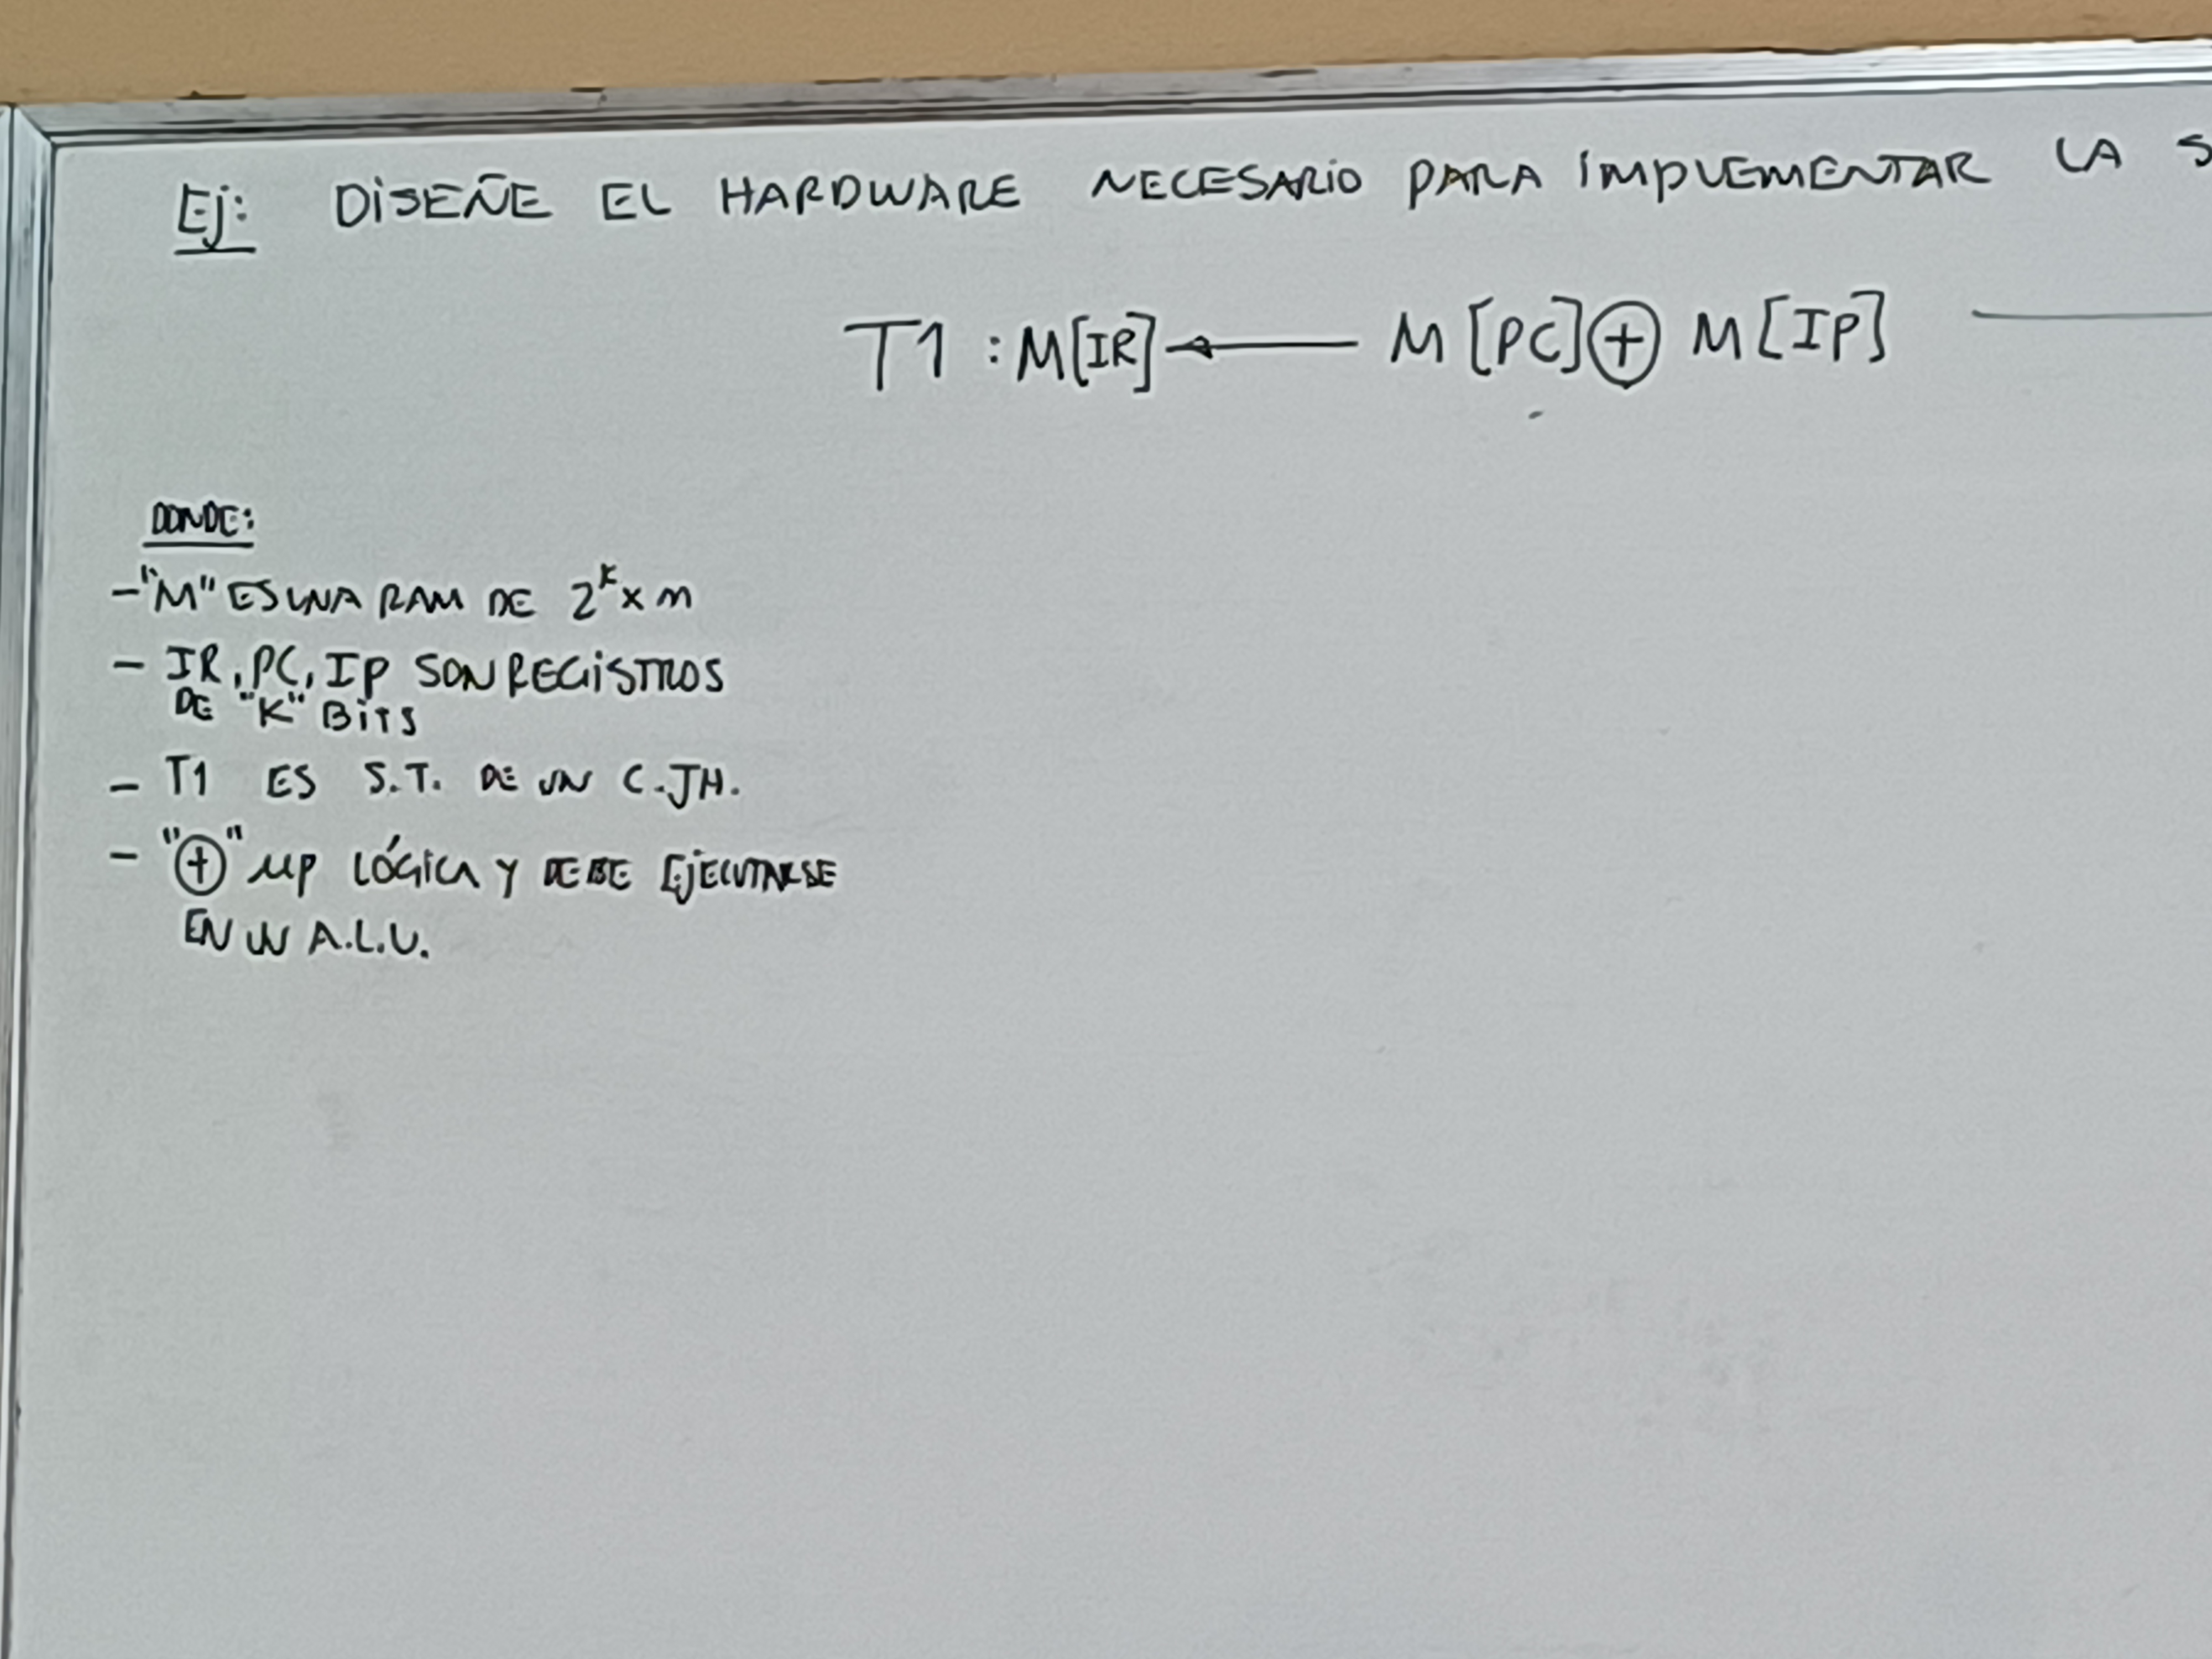 Ej: DISEÑE EL HARDWARE NECESARIO PARA IMPLEMENTAR LA
T1 : M[IR] ← M[PC] ⊕ M[IP]
DONDE:
- "M" ES UNA RAM DE 2^K x n
- IR, PC, IP SON REGISTROS
DE "K" BITS
- T1 ES S.T. DE UN C.JH.
- "⊕" μp LÓGICA Y DEBE EJECUTARSE
EN UN A.L.U.